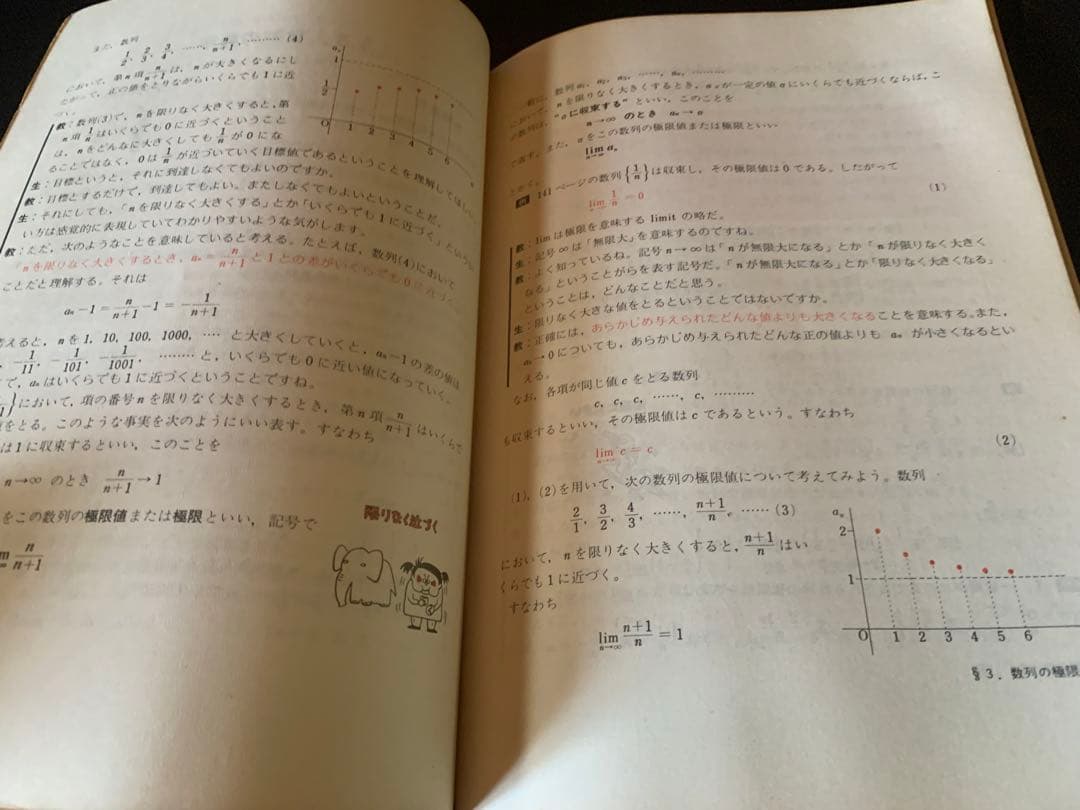 また，数列
1/2, 2/3, 3/4, ……, n/n+1, ……… (4)
において，第n項 n/n+1 は，nが大きくなるにし
たがって，正の値をとりながらいくらでも1に近
教：数列(3)で，nを限りなく大きくすると，第
n項 1/n はいくらでも0に近づくということ
は，nをどんなに大きくしても 1/n が0にな
ることではなく，0は 1/n が近づいていく目標値であるということを理解してほしい
生：目標というと，それに到達しなくてもよいのですか。
教：目標とするだけで，到達してもよい。またしなくてもよいということだ。
生：それにしても，「nを限りなく大きくする」とか「いくらでも1に近づく」という
い方は感覚的に表現していてわかりやすいような気がします。
教：ただ，次のようなことを意味していると考える。たとえば，数列(4)において
「nを限りなく大きくするとき，aₙ = n/n+1 と1との差がいくらでも0に近づく
ことだと理解する。それは
aₙ－1 = n/n+1 －1 = － 1/n+1
考えると，nを1, 10, 100, 1000, …. と大きくしていくと，aₙ－1の差の値は
－1/11, －1/101, －1/1001, ……… と，いくらでも0に近い値になっていく。
で，aₙはいくらでも1に近づくということですね。
において，項の番号nを限りなく大きくするとき，第n項 n/n+1 はいくらで
をとる。このような事実を次のようにいい表す。すなわち
は1に収束するといい，このことを
n→∞ のとき n/n+1 →1
をこの数列の極限値または極限といい，記号で
n/n+1
限りなく近づく
aₙ
1
1/2
O 1 2 3 4 5 6
一般に，数列a₁, a₂, a₃, ……, aₙ, ………
において，nを限りなく大きくするとき，aₙが一定の値aにいくらでも近づくならば，こ
の数列は，“aに収束する”といい，このことを
n→∞ のとき aₙ→a
で表す。また，aをこの数列の極限値または極限といい
lim n→∞ aₙ
とかく。
例 141ページの数列{1/n}は収束し，その極限値は0である。したがって
lim n→∞ 1/n = 0 (1)
教：limは極限を意味するlimitの略だ。
生：記号∞は「無限大」を意味するのですね。
教：よく知っているね。記号n→∞は「nが無限大になる」とか「nが限りなく大きく
なる」ということがらを表す記号だ。「nが無限大になる」とか「限りなく大きくなる」
ということは，どんなことだと思う。
生：限りなく大きな値をとるということではないですか。
教：正確には，あらかじめ与えられたどんな値よりも大きくなることを意味する。また，
aₙ→0についても，あらかじめ与えられたどんな正の値よりも aₙ が小さくなるとい
える。
なお，各項が同じ値cをとる数列
c, c, c, ……, c, ………
も収束するといい，その極限値はcであるという。すなわち
lim n→∞ c = c (2)
(1)，(2)を用いて，次の数列の極限値について考えてみよう。数列
2/1, 3/2, 4/3, ……, n+1/n, …… (3)
において，nを限りなく大きくすると，n+1/n はい
くらでも1に近づく。
すなわち
lim n→∞ n+1/n = 1
aₙ
2
1
O 1 2 3 4 5 6
§3. 数列の極限